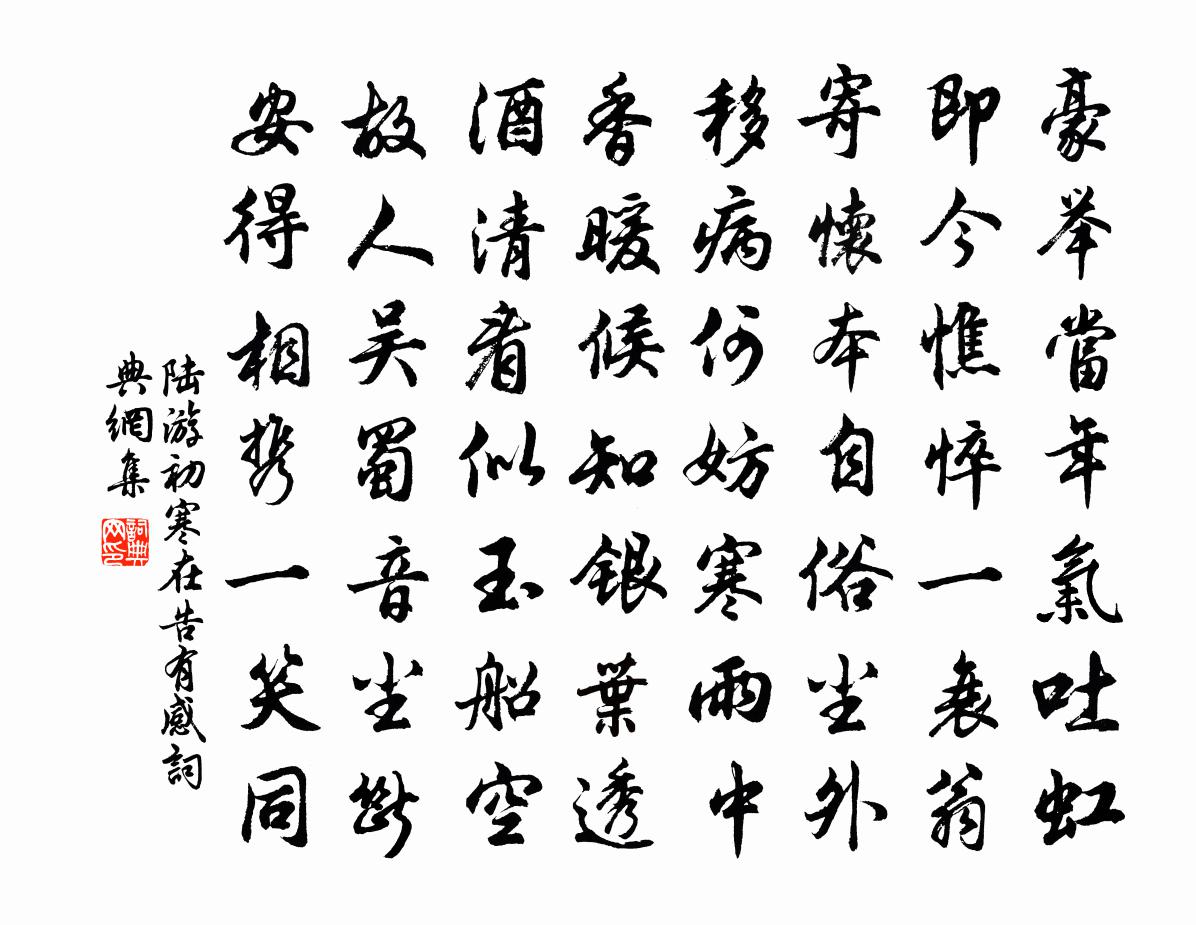 豪举當年氣吐虹
即今憔悴一衰翁
寄懷本自俗尘外
移病何妨寒雨中
香暖候知銀葉透
酒清看似玉船空
故人吴蜀音尘断
安得相携一笑同
陆游初寒在告有感詞
典網集
詞典
网印